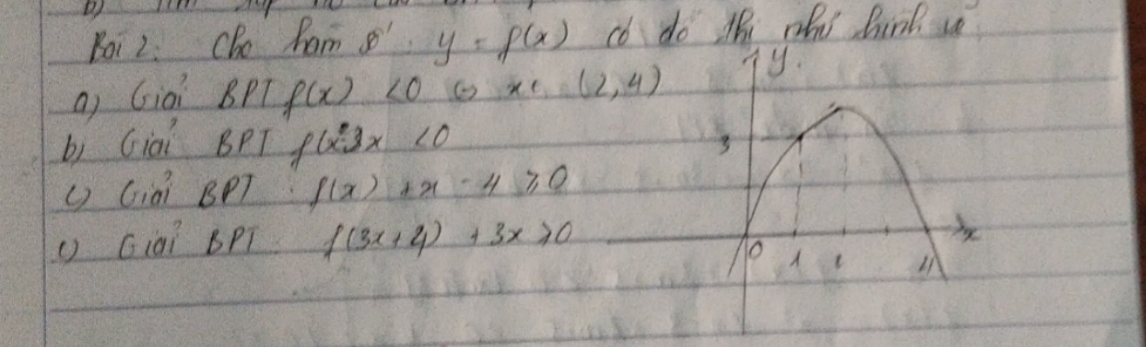 Bài 2: Cho hàm số y = f(x) có đồ thị như hình vẽ
a) Giải BPT f(x) < 0 ⇔ x ∈ (2,4)
b) Giải BPT
c) Giải BPT : f(x) + x - 4 ≥ 0
Giải BPT f(3x+4) + 3x > 0
y
3
0 1 4
x